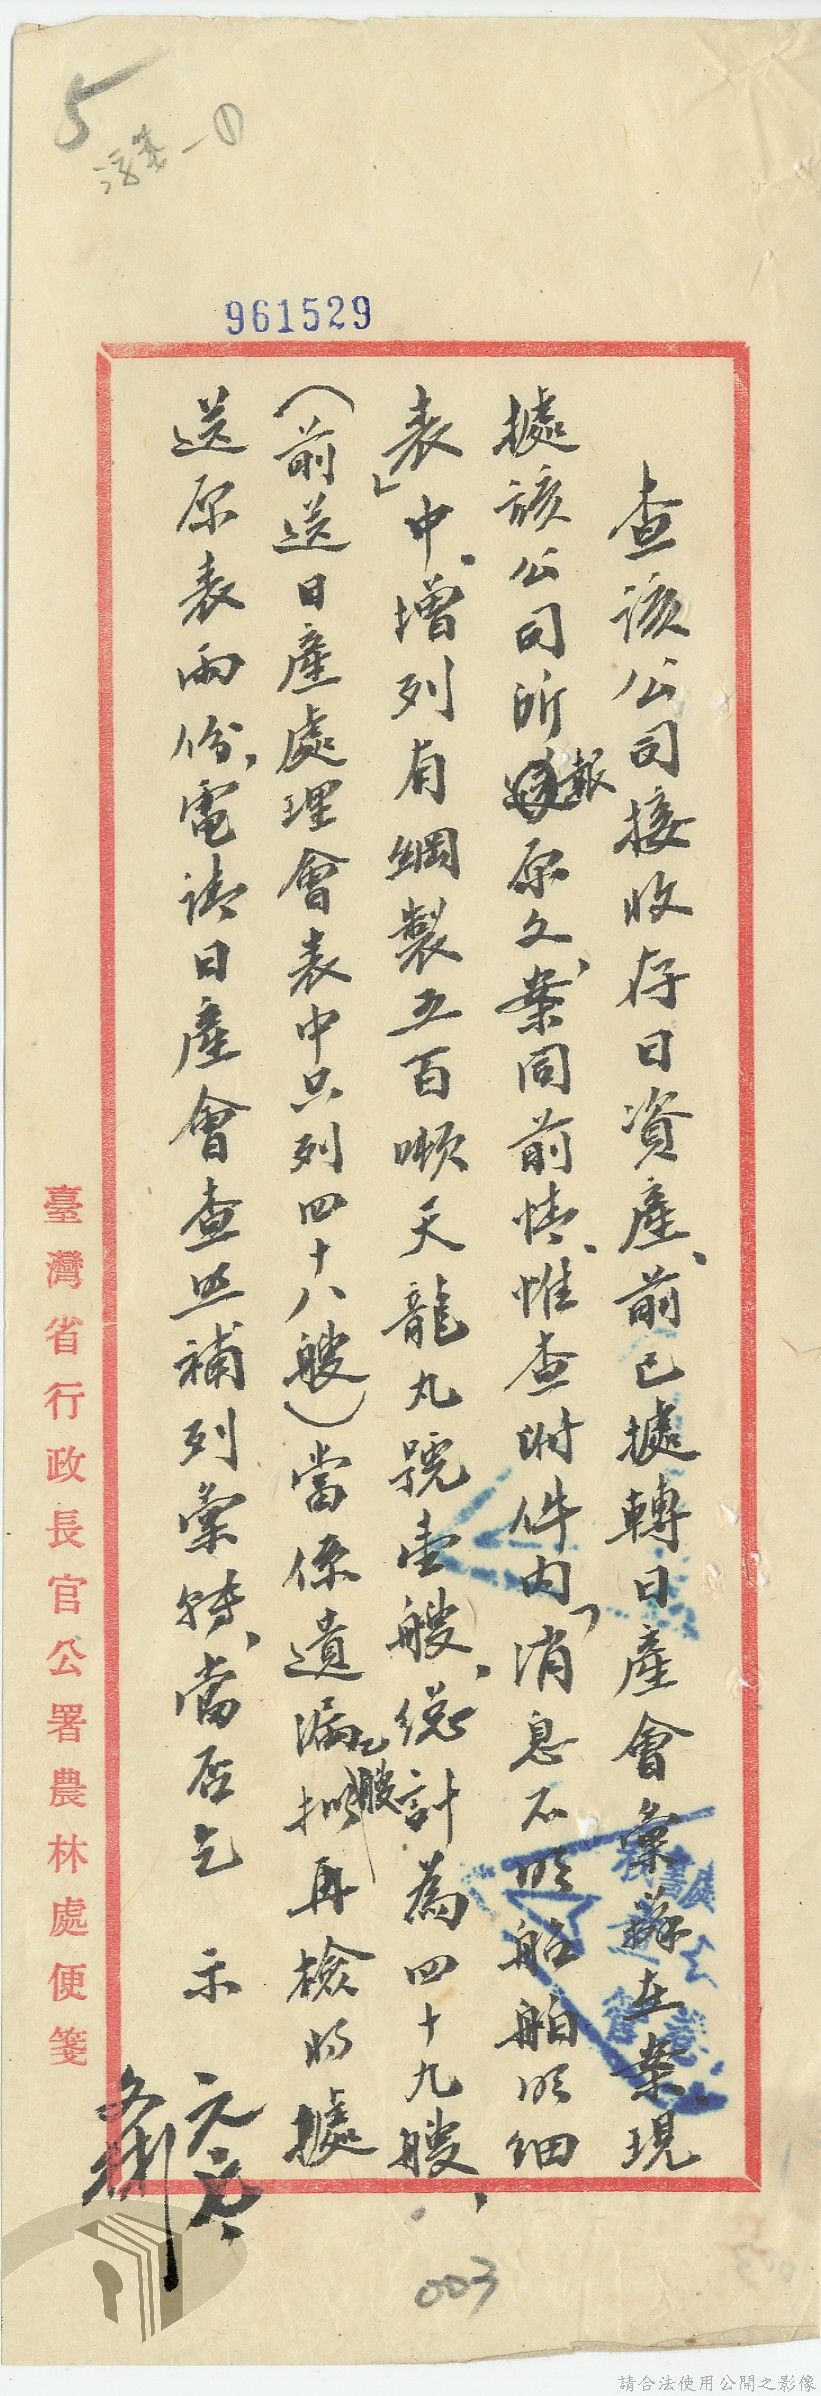 5
961529
查該公司接收存日資產、前已據轉日產會彙辦在案、現
據該公司所報原文、案同前情、惟查附件內、「消息不明船舶明細
表」中、增列有鋼製五百噸天龍丸號壹艘、總計為四十九艘、
（前送日產處理會表中只列四十八艘）當係遺漏乙艘擬再檢附據
送原表兩份、電請日產會查照補列彙轉、當否乞 示
臺灣省行政長官公署農林處便箋
003
請合法使用公開之影像